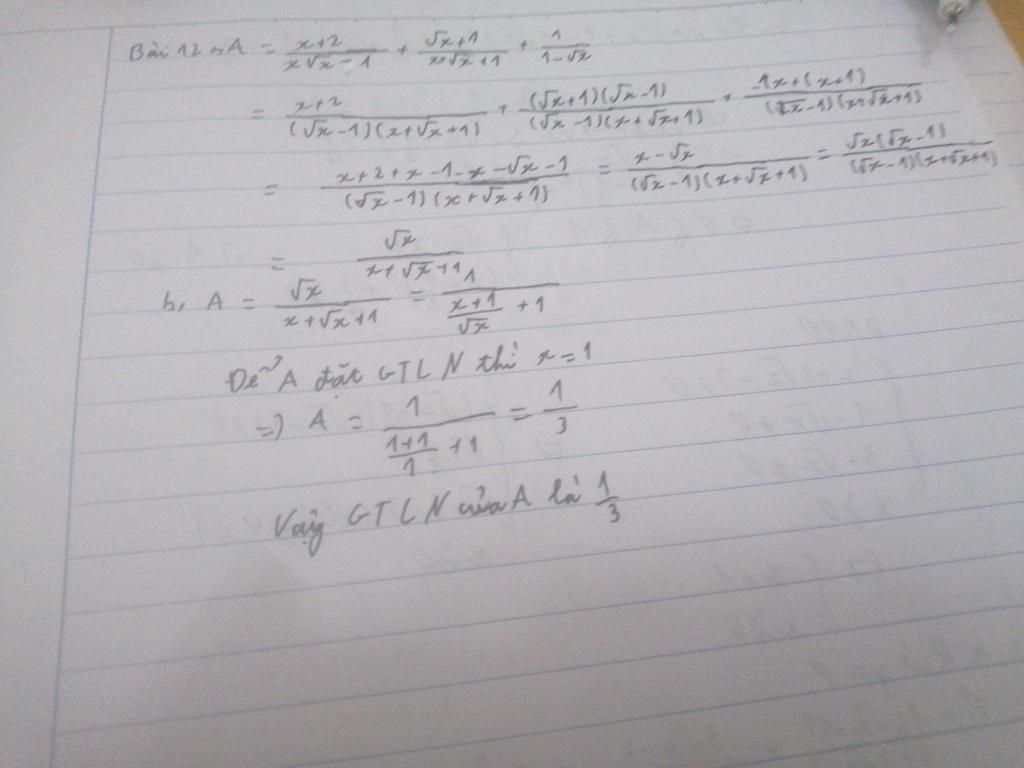 Bài 12 a, A = \frac{x+2}{x\sqrt{x}-1} + \frac{\sqrt{x}+1}{x+\sqrt{x}+1} + \frac{1}{1-\sqrt{x}}
= \frac{x+2}{(\sqrt{x}-1)(x+\sqrt{x}+1)} + \frac{(\sqrt{x}+1)(\sqrt{x}-1)}{(\sqrt{x}-1)(x+\sqrt{x}+1)} + \frac{-1x+(x+1)}{(\sqrt{x}-1)(x+\sqrt{x}+1)}
= \frac{x+2+x-1-x-\sqrt{x}-1}{(\sqrt{x}-1)(x+\sqrt{x}+1)} = \frac{x-\sqrt{x}}{(\sqrt{x}-1)(x+\sqrt{x}+1)} = \frac{\sqrt{x}(\sqrt{x}-1)}{(\sqrt{x}-1)(x+\sqrt{x}+1)}
= \frac{\sqrt{x}}{x+\sqrt{x}+1}
b, A = \frac{\sqrt{x}}{x+\sqrt{x}+1} = \frac{1}{\frac{x+1}{\sqrt{x}}+1}
Để A đặt GTLN thì x=1
=) A = \frac{1}{\frac{1+1}{1}+1} = \frac{1}{3}
Vậy GTLN của A là \frac{1}{3}